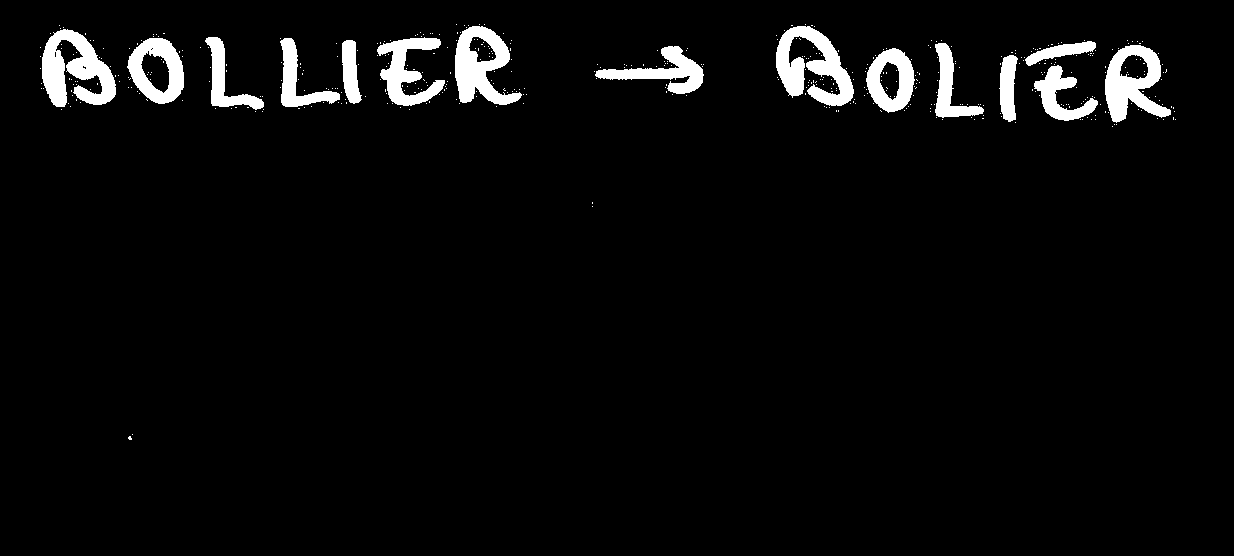 BOLLIER → BOLIER